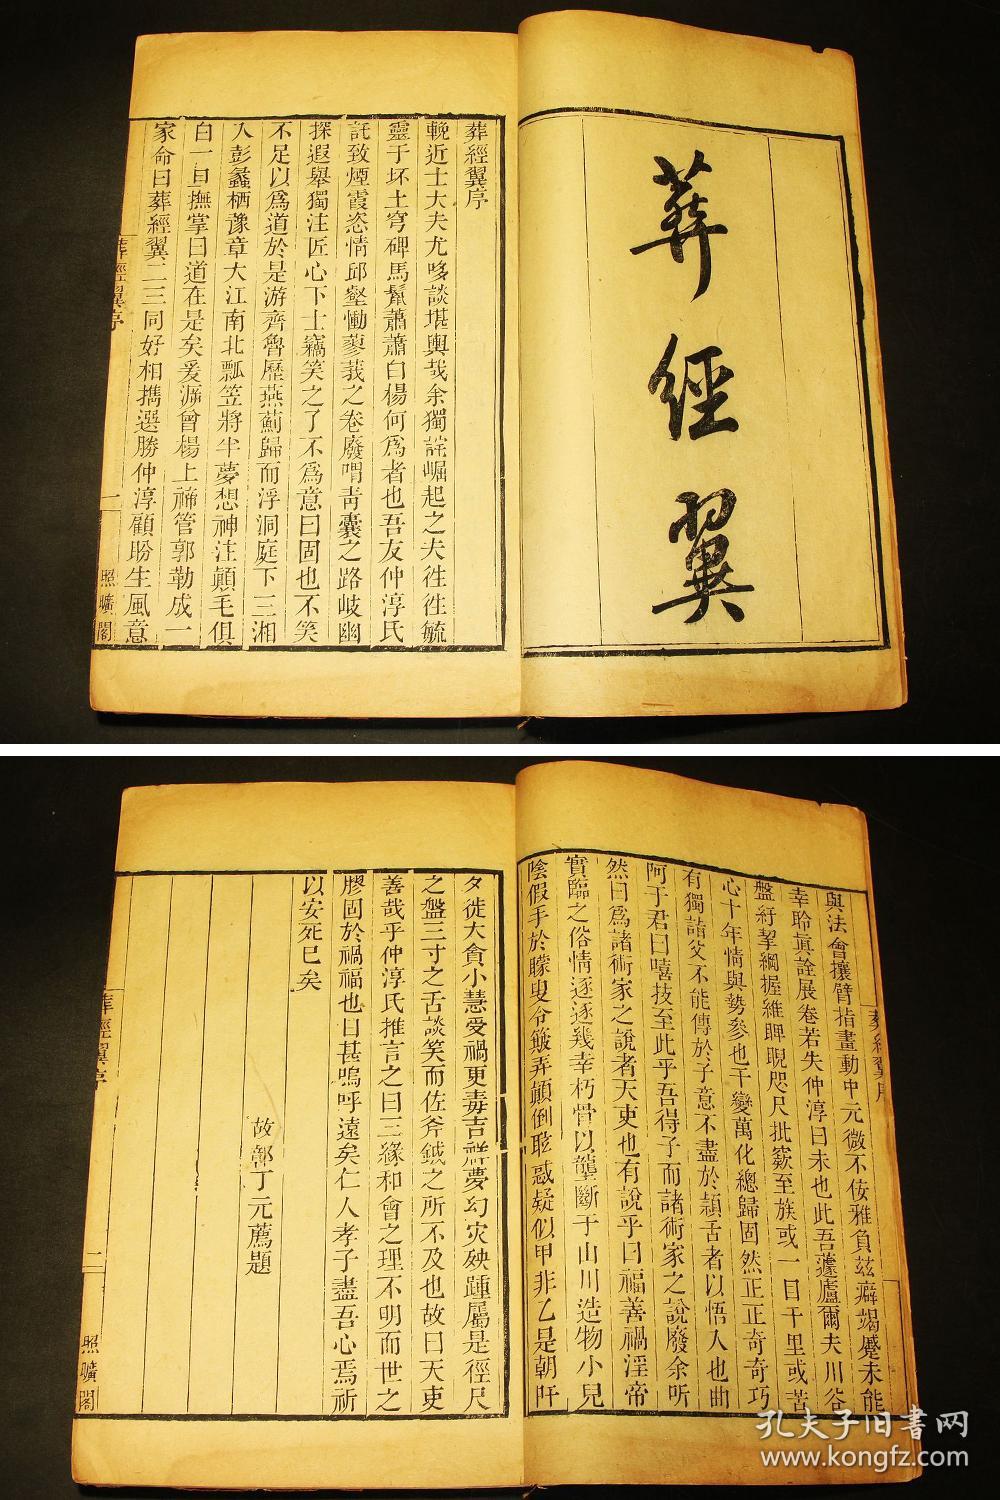 葬經翼
葬經翼序
輓近士大夫尤哆談堪輿哉余獨詫崛起之夫徃徃毓
靈于坏土穹碑馬鬣蕭蕭白楊何爲者也吾友仲淳氏
託致煙霞恣情邱壑慟蓼莪之卷廢喟靑囊之路岐幽
探遐舉獨注匠心下士竊笑之了不爲意曰固也不笑
不足以爲道於是游齊魯歷燕薊歸而浮洞庭下三湘
入彭蠡栖豫章大江南北瓢笠將半夢想神注顚毛俱
白一旦撫掌曰道在是矣爰溯曾楊上禘管郭勒成一
家命曰葬經翼二三同好相擕選勝仲淳顧盼生風意
葬經翼序
一
照曠閣
與法會攘臂指畫動中元微不侫雅負玆癖竭蹷未能
幸聆眞詮展卷若失仲淳曰未也此吾蘧廬爾夫川谷
盤紆挈綱握維睥睨咫尺批窾至族或一目千里或苦
心十年情與勢參也千變萬化總歸固然正正奇奇巧
有獨詣父不能傳於子意不盡於頴舌者以悟人也曲
阿于君曰嘻技至此乎吾得子而諸術家之說廢余听
然曰爲諸術家之說者天吏也有說乎曰福善禍淫帝
實臨之俗情逐逐幾幸朽骨以壟斷于山川造物小兒
陰假手於矇叟令簸弄顚倒眩惑疑似甲非乙是朝阡
葬經翼序
夕徙大貪小慧受禍更毒吉祥夢幻灾殃踵屬是徑尺
之盤三寸之舌談笑而佐斧鉞之所不及也故曰天吏
善哉乎仲淳氏推言之曰三緣和會之理不明而世之
膠固於禍福也日甚嗚呼遠矣仁人孝子盡吾心焉祈
以安死已矣
故鄣丁元薦題
葬經翼序
二
照曠閣
孔夫子旧書网
www.kongfz.com